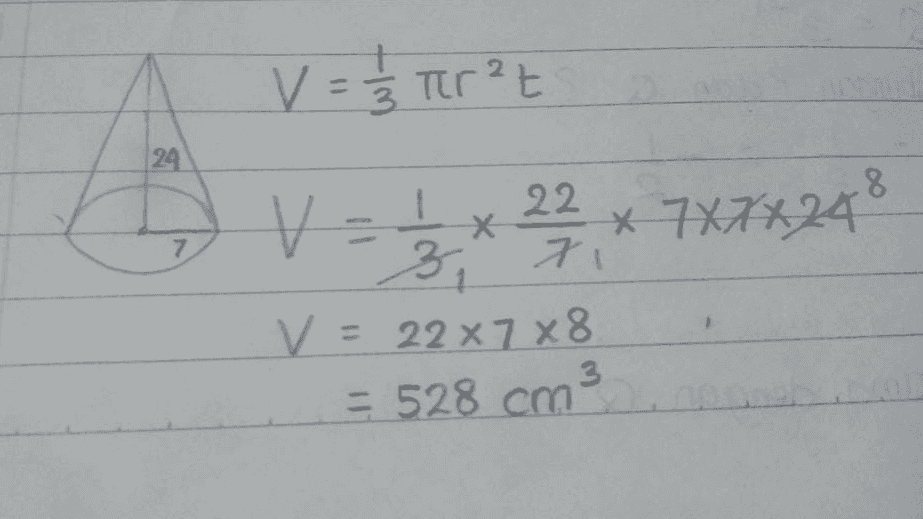 V = 1/3 πr²t
24
7
V = 1/3 1 × 22/7 1 × 7×7×24 8
V = 22 × 7 × 8
= 528 cm³